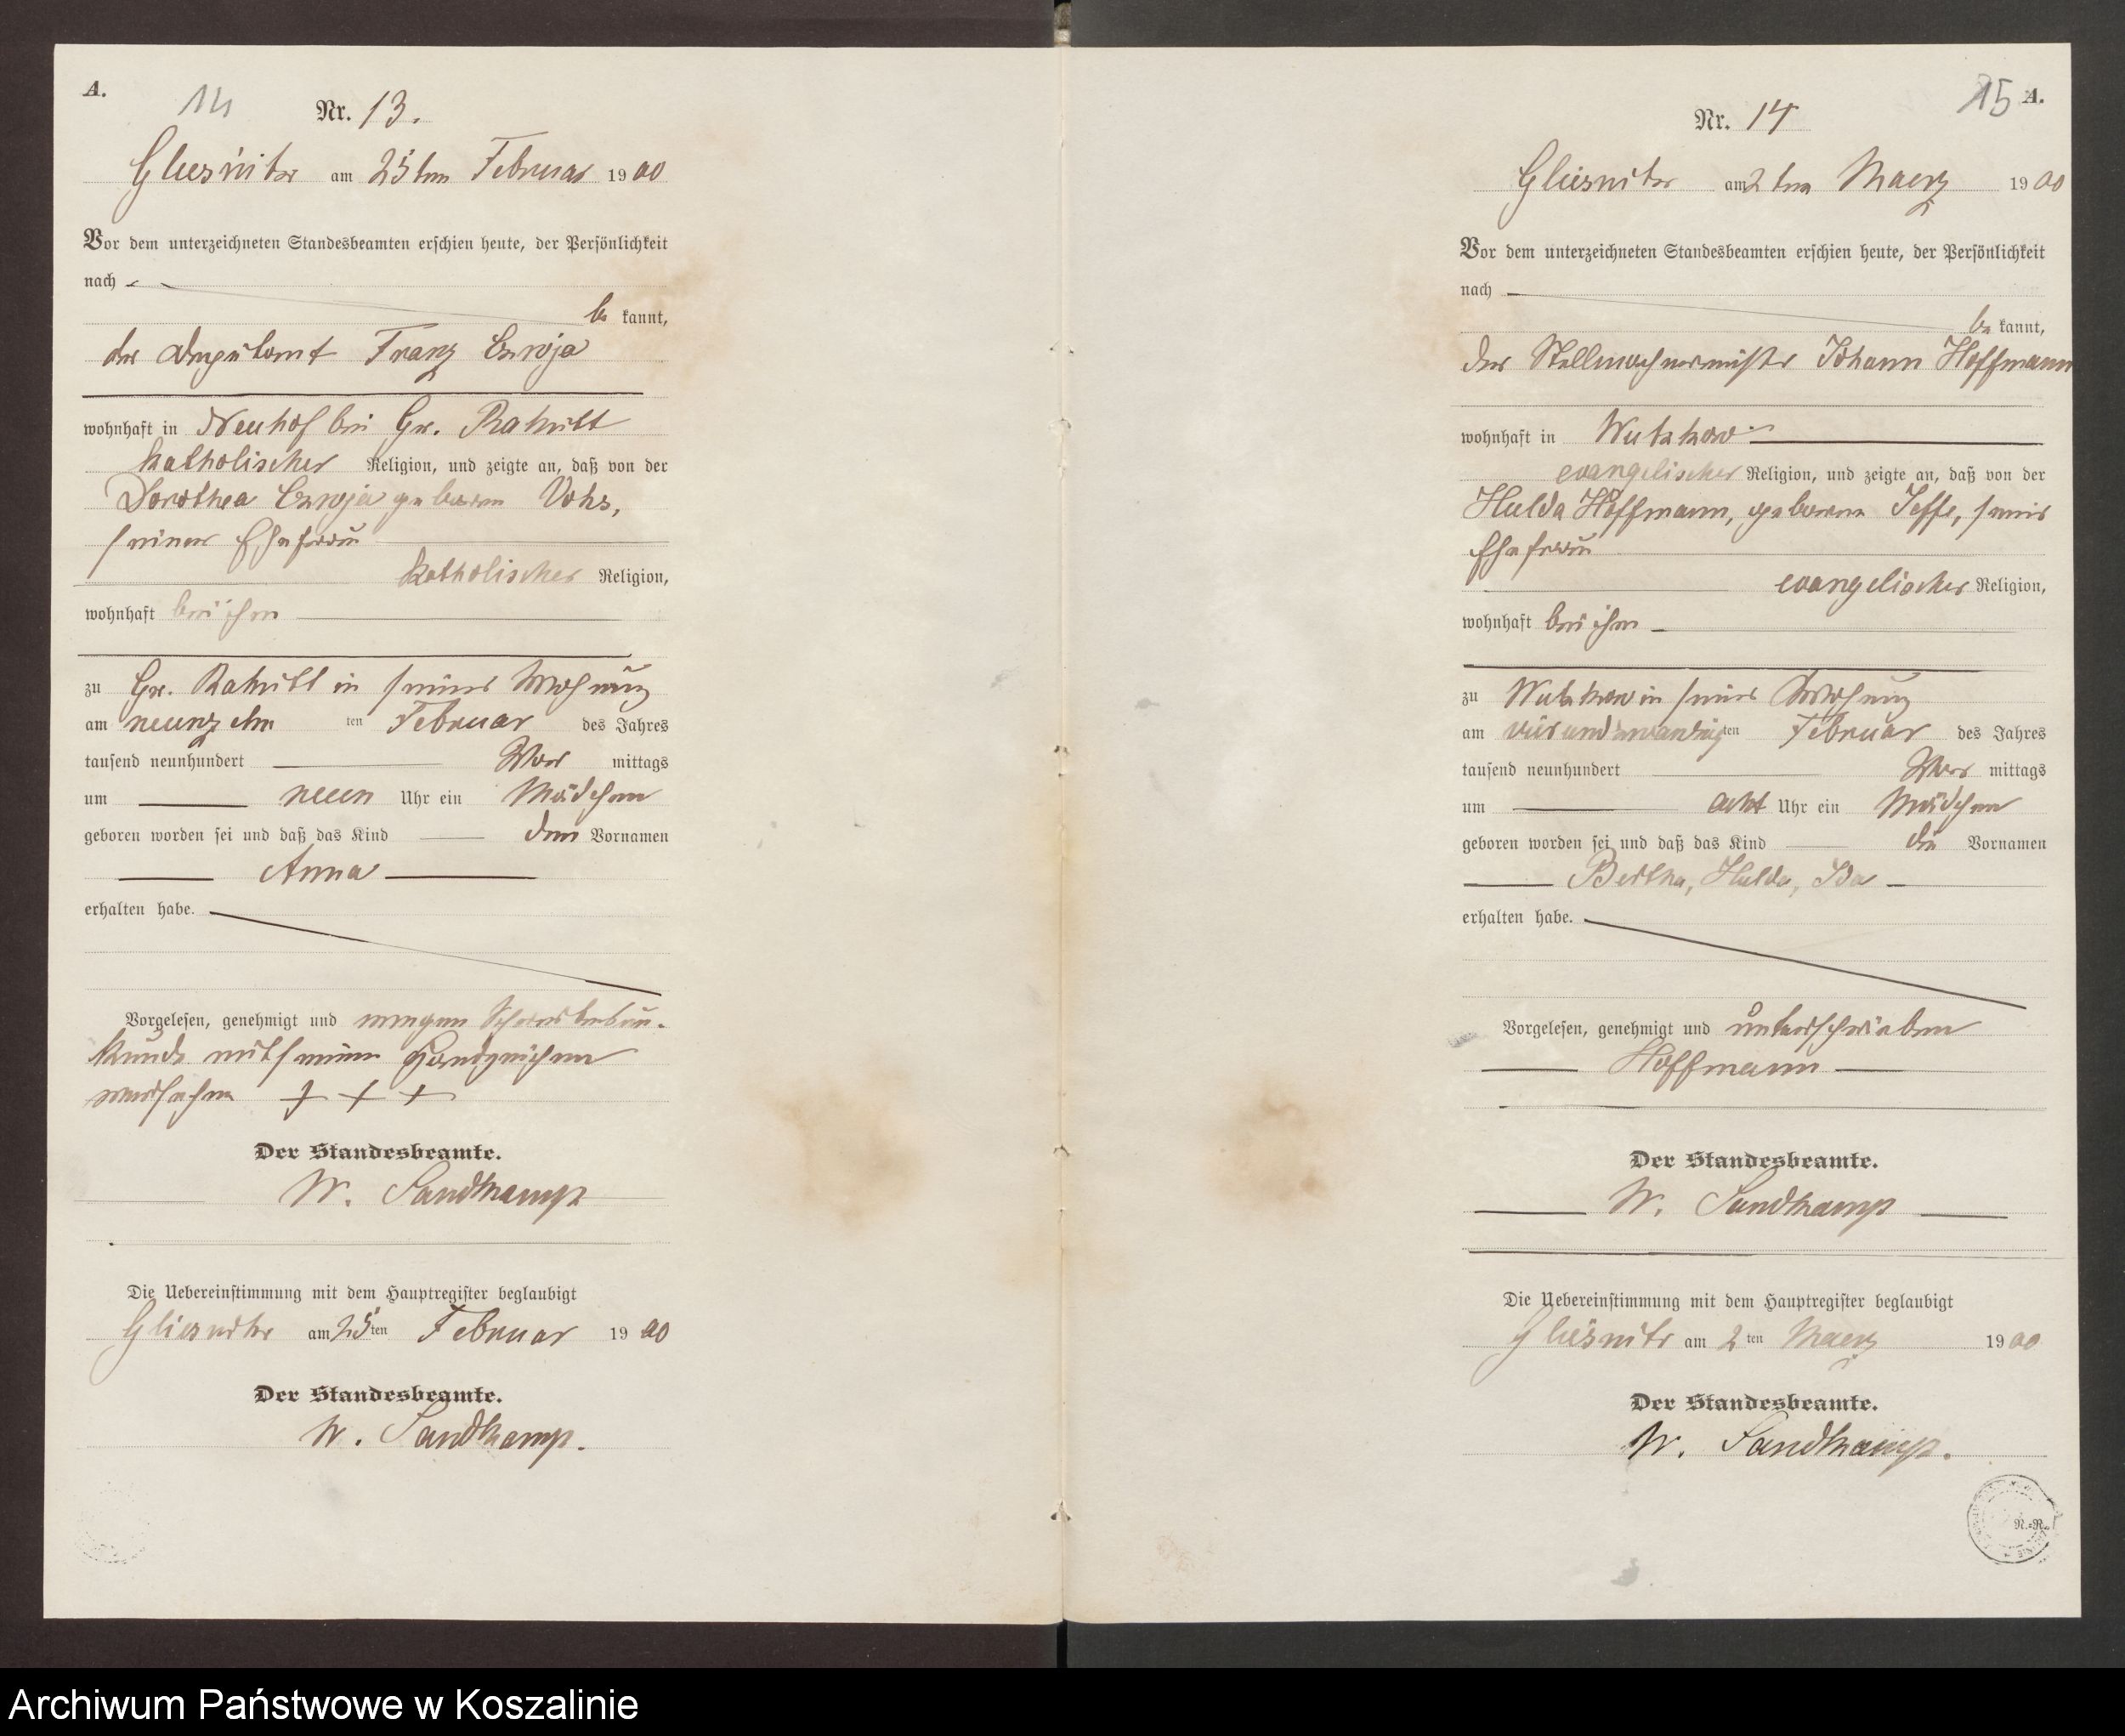 A.
14
Nr. 13.
Gliesnitz am 25ten Februar 1900
Vor dem unterzeichneten Standesbeamten erschien heute, der Persönlichkeit
nach
be kannt,
der Deputant Franz
wohnhaft in Neuhof bei Gr. Rakitt
katholischer Religion, und zeigte an, daß von der
Dorothea geborene Vohs,
seiner Ehefrau
katholischer Religion,
wohnhaft bei ihm
zu Gr. Rakitt in seiner Wohnung
am neunzehn ten Februar des Jahres
tausend neunhundert Vor mittags
um neun Uhr ein Mädchen
geboren worden sei und daß das Kind den Vornamen
Anna
erhalten habe.
Vorgelesen, genehmigt und wegen Schreibensun-
kunde mit seinem Handzeichen
versehen + + +
Der Standesbeamte.
W. Sandkamp
Die Uebereinstimmung mit dem Hauptregister beglaubigt
Gliesnitz am 25ten Februar 1900
Der Standesbeamte.
W. Sandkamp.
15 A.
Nr. 14
Gliesnitz am 2ten Maerz 1900
Vor dem unterzeichneten Standesbeamten erschien heute, der Persönlichkeit
nach
be kannt,
der Stellmachermeister Johann Hoffmann
wohnhaft in Wutzkow
evangelischer Religion, und zeigte an, daß von der
Hulda Hoffmann, geborene Jeffe, seiner
Ehefrau
evangelischer Religion,
wohnhaft bei ihm
zu Wutzkow in seiner Wohnung
am vierundzwanzigten Februar des Jahres
tausend neunhundert Vor mittags
um acht Uhr ein Mädchen
geboren worden sei und daß das Kind die Vornamen
Bertha, Hulda, Ida
erhalten habe.
Vorgelesen, genehmigt und unterschrieben
Hoffmann
Der Standesbeamte.
W. Sandkamp
Die Uebereinstimmung mit dem Hauptregister beglaubigt
Gliesnitz am 2ten Maerz 1900
Der Standesbeamte.
W. Sandkamp.
N.-R.
Archiwum Państwowe w Koszalinie